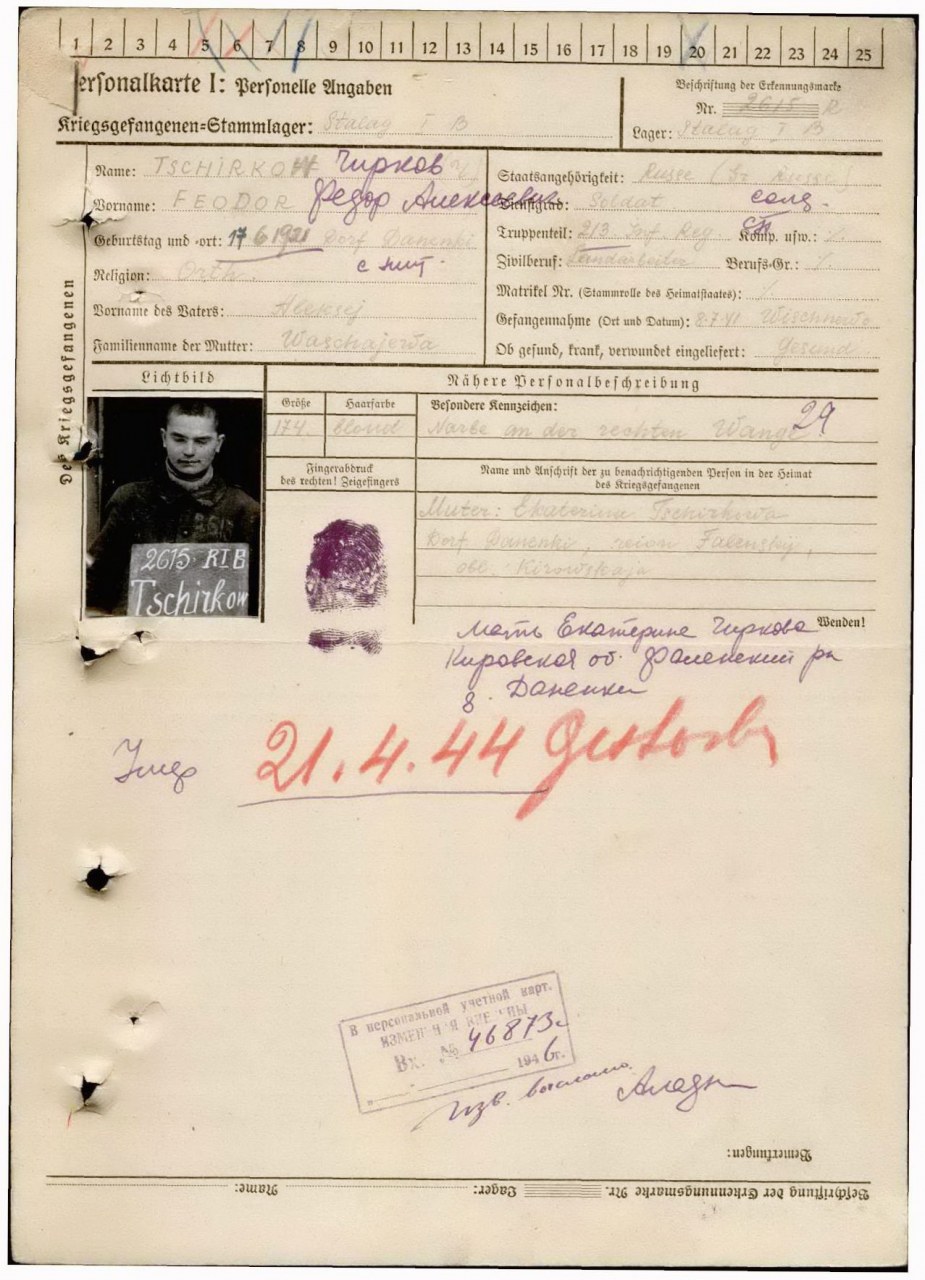 1 2 3 4 5 6 7 8 9 10 11 12 13 14 15 16 17 18 19 20 21 22 23 24 25
Personalkarte I: Personelle Angaben
Kriegsgefangenen-Stammlager: Stalag I B
Beschriftung der Erkennungsmarke
Nr. 2615 R
Lager: Stalag I B
Des Kriegsgefangenen
Name: TSCHIRKOW Чирков
Vorname: FEODOR Федор Алексеевич
Geburtstag und -ort: 17 6 1921 Dorf Danenki
Religion: Orth.
Vorname des Vaters: Aleksej
Familienname der Mutter: Waschajewa
Staatsangehörigkeit: Russe
Dienstgrad: Soldat солд.
Truppenteil: 213 Inf. Reg. Komp. usw.: ٪
Zivilberuf: Landarbeiter Berufs-Gr.: ٪
Matrikel Nr. (Stammrolle des Heimatstaates): ٪
Gefangennahme (Ort und Datum): 8.7.41 Wischnewo
Ob gesund, krank, verwundet eingeliefert: Gesund
Lichtbild
2615 RIB
Tschirkow
Nähere Personalbeschreibung
Größe
174.
Haarfarbe
blond
Besondere Kennzeichen:
Narbe an der rechten Wange 29
Fingerabdruck
des rechten! Zeigefingers
Name und Anschrift der zu benachrichtigenden Person in der Heimat
des Kriegsgefangenen
Muter: Ekaterina Tschirkowa
Dorf Danenki, reion Falenskij,
obl. Kirowskaja
Wenden!
мать Екатерине Чиркова
Кировская об. Фаленский рн
д. Даненки
Умер 21.4.44 Gestorben
В персональной учетной карт.
ИЗМЕНЕНИЯ ВНЕСЕНЫ
Вх. № 46873с
1946г.
изв. выслано
Bemerkungen:
Beschriftung der Erkennungsmarke Nr. Lager: Name: